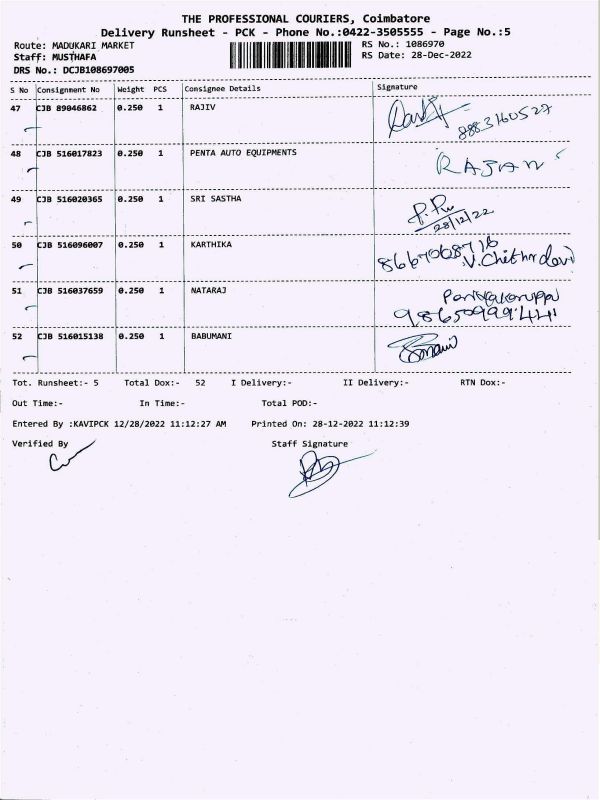 THE PROFESSIONAL COURIERS, Coimbatore
Delivery Runsheet - PCK - Phone No.:0422-3505555 - Page No.:5
Route: MADUKARI MARKET RS No.: 1086970
Staff: MUSTHAFA RS Date: 28-Dec-2022
DRS No.: DCJB108697005
S No Consignment No Weight PCS Consignee Details Signature
47 CJB 89046862 0.250 1 RAJIV 8883160527
48 CJB 516017823 0.250 1 PENTA AUTO EQUIPMENTS RAJAN
49 CJB 516020365 0.250 1 SRI SASTHA
28/12/22
50 CJB 516096007 0.250 1 KARTHIKA
V.Chithra devi
51 CJB 516037659 0.250 1 NATARAJ
52 CJB 516015138 0.250 1 BABUMANI
Tot. Runsheet:- 5 Total Dox:- 52 I Delivery:- II Delivery:- RTN Dox:-
Out Time:- In Time:- Total POD:-
Entered By :KAVIPCK 12/28/2022 11:12:27 AM Printed On: 28-12-2022 11:12:39
Verified By Staff Signature